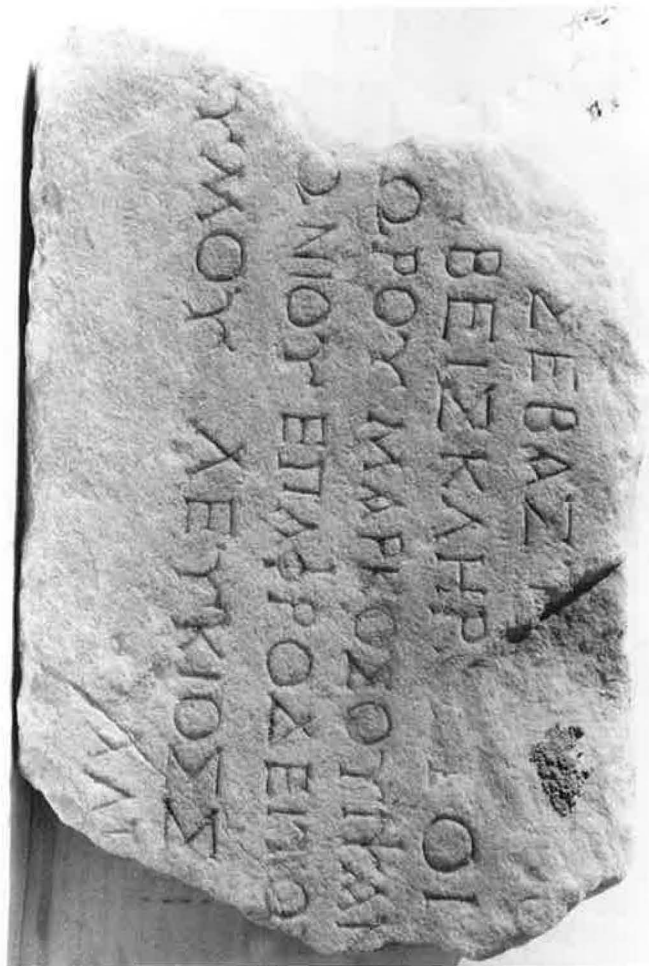 ΣΕΒΑΣ
ΒΕΙΣΚΛΗΡ ΟΙ
ΩΡΟΥ ΜΑΡΚΟΣ
ΩΝΙΟΥ ΕΠΑΦΡΟΔΕΙΤΟ
ΥΜΟΥ ΛΕΥΚΙΟΣ Σ